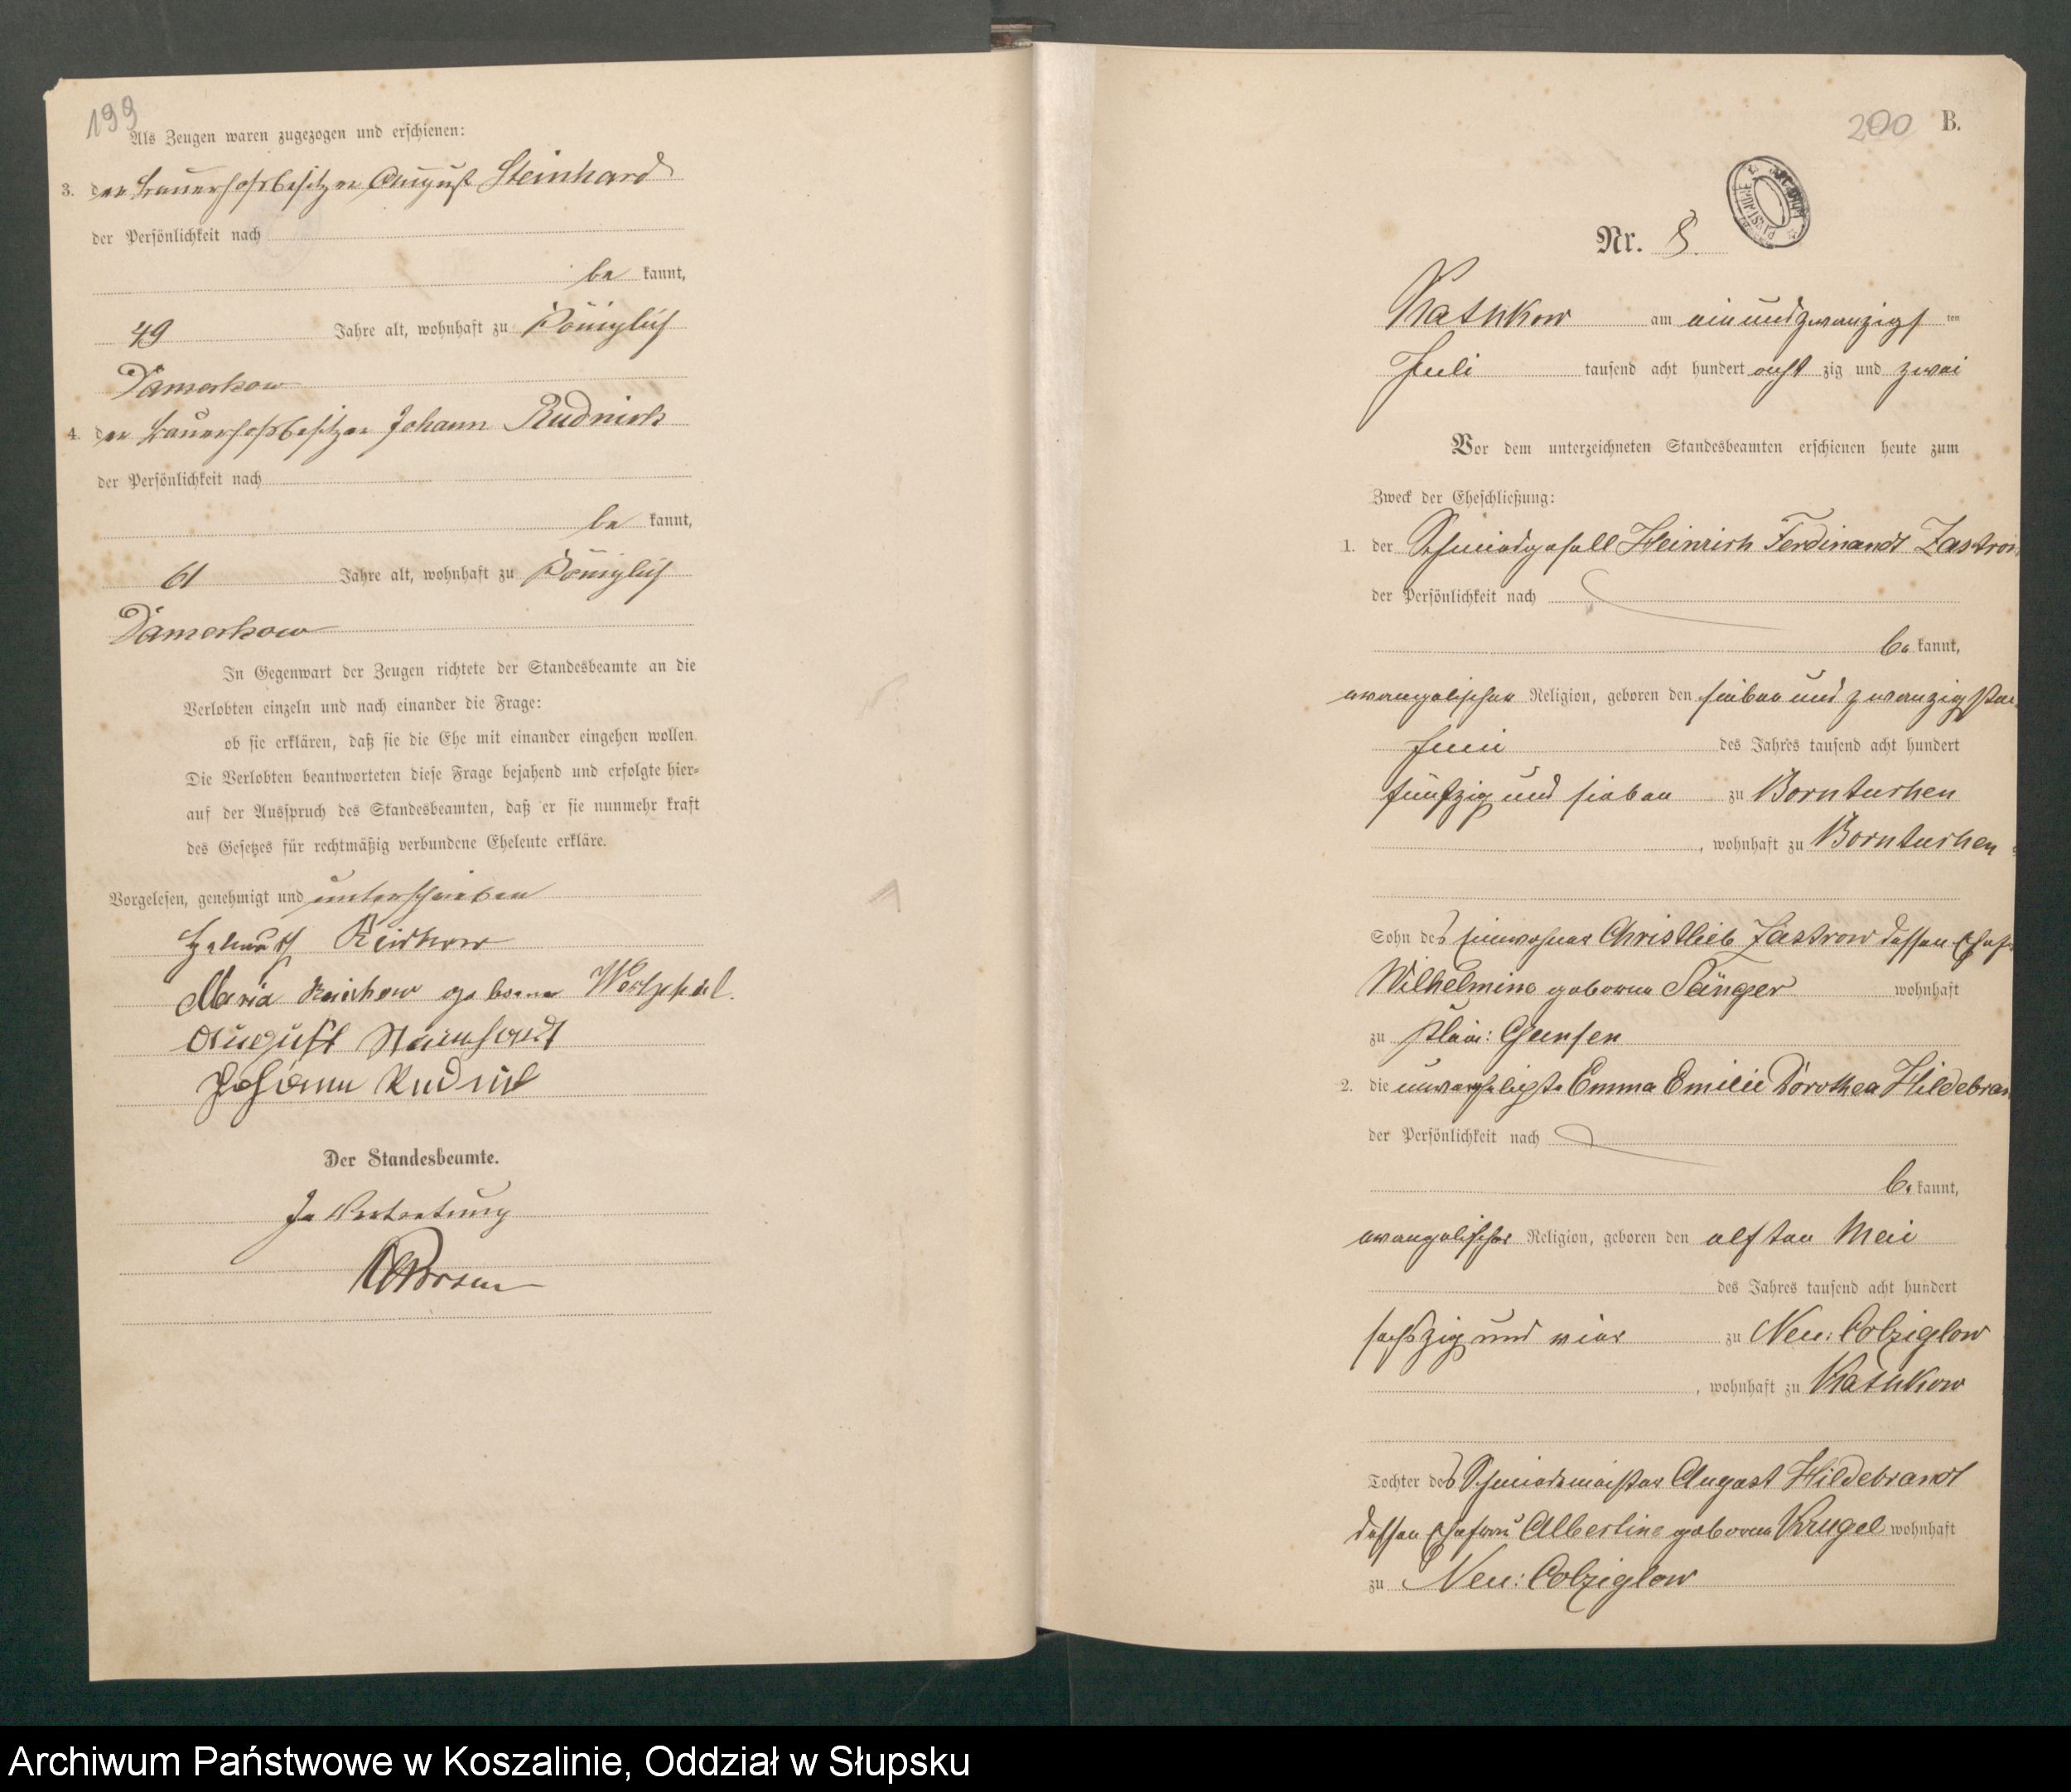 199
Als Zeugen waren zugezogen und erschienen:
3. der Bauerhofsbesitzer August Steinhard
der Persönlichkeit nach
be kannt,
49 Jahre alt, wohnhaft zu Königlich
Damerkow
4. der Bauerhofsbesitzer Johann Rudnick
der Persönlichkeit nach
be kannt,
61 Jahre alt, wohnhaft zu Königlich
Damerkow
In Gegenwart der Zeugen richtete der Standesbeamte an die
Verlobten einzeln und nach einander die Frage:
ob sie erklären, daß sie die Ehe mit einander eingehen wollen
Die Verlobten beantworteten diese Frage bejahend und erfolgte hier-
auf der Ausspruch des Standesbeamten, daß er sie nunmehr kraft
des Gesetzes für rechtmäßig verbundene Eheleute erkläre.
Vorgelesen, genehmigt und unterschrieben
Helmuth
Maria geborene Westphal.
August
Johann
Der Standesbeamte.
In Vertretung
200 B.
Nr. 8.
Kathkow am einundzwanzigs ten
Juli tausend acht hundert acht zig und zwei
Vor dem unterzeichneten Standesbeamten erschienen heute zum
Zweck der Eheschließung:
1. der Schmiedgesell Heinrich Ferdinandt Zastrow
der Persönlichkeit nach
be kannt,
evangelischer Religion, geboren den sieben und zwanzigsten
Juni des Jahres tausend acht hundert
fünfzig und sieben zu Borntuchen
, wohnhaft zu Borntuchen
Sohn des Einwohner Christlieb Zastrow dessen
Wilhelmine geborene Sänger wohnhaft
zu Klein: Gansen
2. die unverehelichte Emma Emilie Dorothea Hildebran
der Persönlichkeit nach
be kannt,
evangelischer Religion, geboren den elften Mai
des Jahres tausend acht hundert
sechszig und vier zu Neu: Colziglow
, wohnhaft zu Kathkow
Tochter des Schmiedemeister August Hildebrandt
dessen Ehefrau Albertine geborene Krugel wohnhaft
zu Neu: Colziglow
Archiwum Państwowe w Koszalinie, Oddział w Słupsku